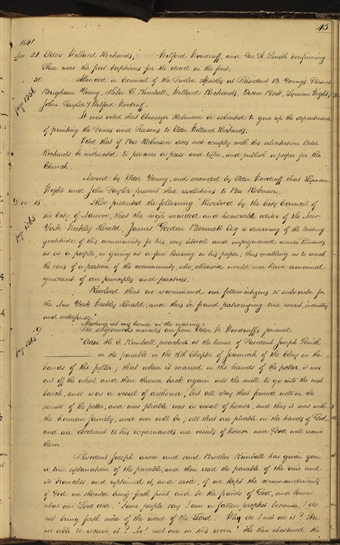 45
1841
Nov 21 Elder Willard Richards, Wilford Woodruff, and Geo. A. Smith confirming
These were the first baptisms for the dead in the font.
30 Attended a Council of the Twelve Apostles at President B. Young's Present
Brigham Young, Heber C. Kimball, Willard Richards, Orson Pratt, Lyman Wight,
John Taylor & Wilford Woodruff.
It was voted that Ebenezer Robinson be solicited to give up the department
of printing the Times and Seasons to Elder Willard Richards.
Voted that if Bro Robinson does not comply with this solicitation, Elder
Richards be instructed to procure a press and type, and publish a paper for the
Church.
Moved by Elder Young, and seconded by Elder Woodruff that Lyman
Wight and John Taylor present these resolutions to Bro Robinson.
Dec Also presented the following "Resolved by the City Council of
the City of Nauvoo, that the high minded, and honorable editor of the New
York Weekly Herald, James Gordon Bennett Esq is deserving of the lasting
gratitude of this community for his very liberal and unprejudiced course towards
us as a people, in giving us a fair hearing in his paper, thus enabling us to reach
the ears of a portion of the community, who, otherwise would ever have remained
ignorant of our principles and practices.
Resolved that we recommend our fellow citizens to subscribe for
the New York Weekly Herald, and thus be found patronizing true merit, industry
and enterprize."
Meeting at my house in the evening
The minutes are from Elder W. Woodruff's journal
"Elder H. C. Kimball preached at the house of President Joseph Smith
on the parable in the 18th Chapter of Jeremiah of the Clay in the
hands of the potter, that when it marred in the hands of the potter, it was
cut off the wheel and then thrown back again into the mill to go into the next
batch, and was a vessel of dishonor; but all clay that formed well in the
hands of the potter, and was pliable was a vessel of honor, and thus it was with
the human family, and ever will be, all that are pliable in the hands of God,
and are obedient to his commands are vessels of honor and God will receive
them.
President Joseph arose and said Brother Kimball has given you
a true explanation of the parable, and then read the parable of the vine and
its branches and explained it, and said, if we keep the commandments
of God we should bring forth fruit and be the friends of God, and know
what our Lord did. Some people say I am a fallen prophet because I do
not bring forth more of the word of the Lord. Why do I not do it? Are
we able to receive it? No! not one in this room! He then chastened the